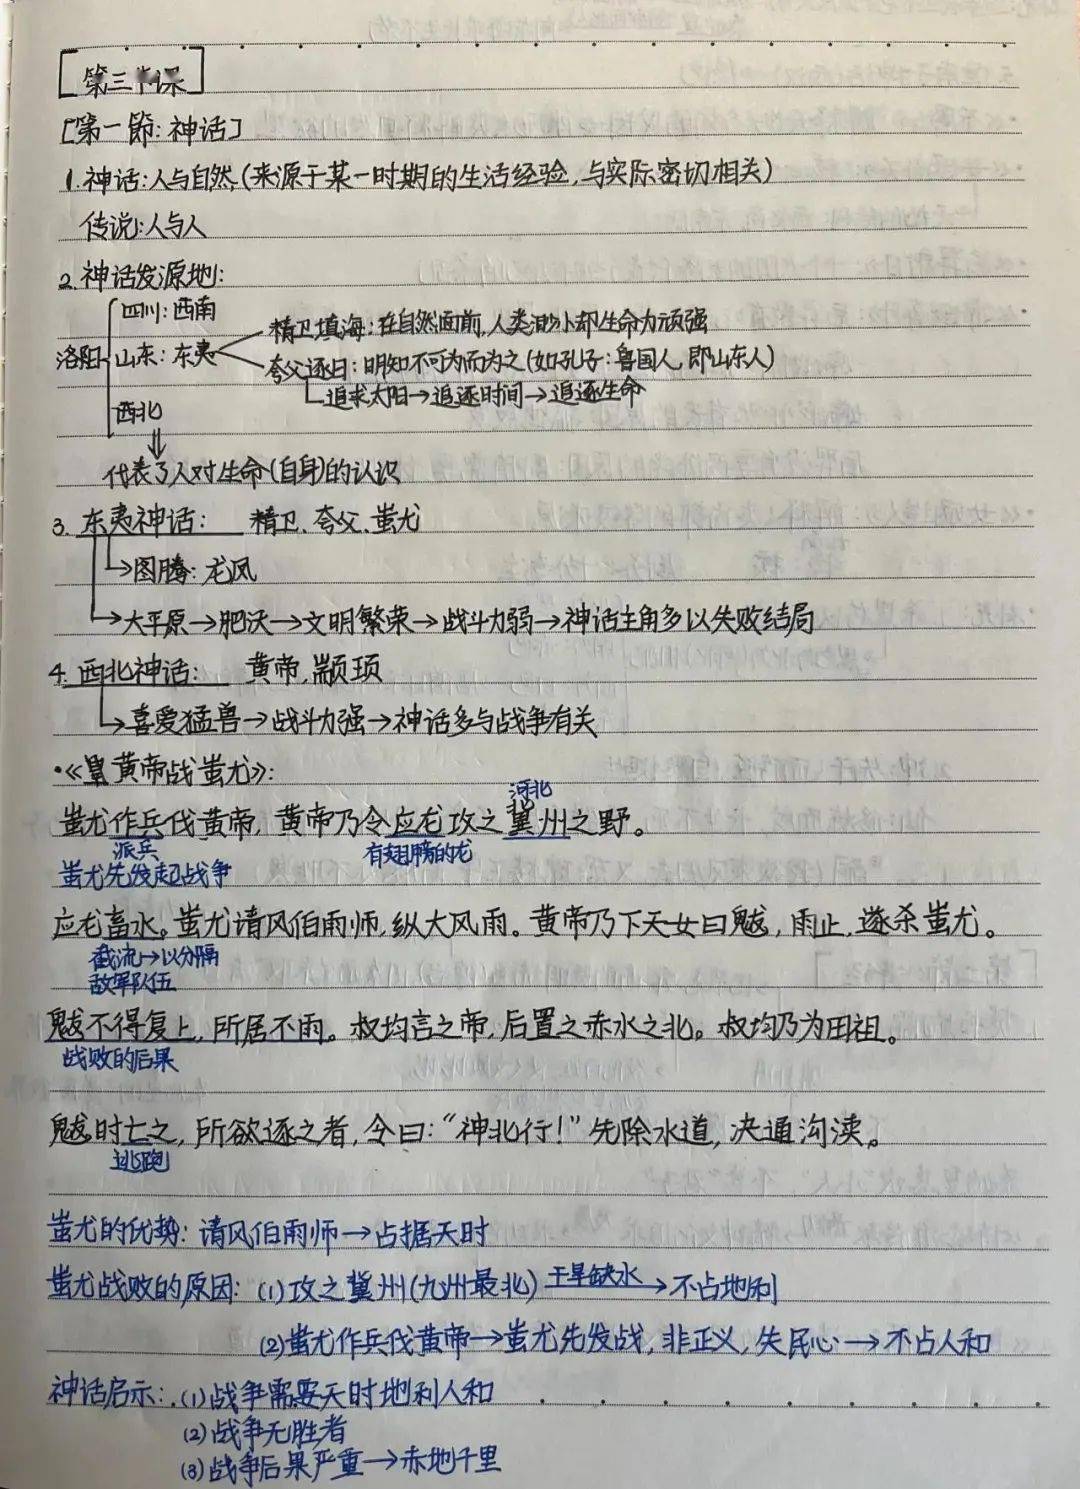 第三课
[第一節:神话]
1.神话:人与自然,(来源于某一时期的生活经验,与实际密切相关)
传说:人与人
2.神话发源地:
四川:西南
精卫填海:在自然面前,人类渺小却生命力顽强
洛阳 山东:东夷
夸父逐日:明知不可为而为之(如孔子:鲁国人,即山东人)
追求太阳→追逐时间→追逐生命
西北
代表了人对生命(自身)的认识
3.东夷神话: 精卫、夸父、蚩尤
→图腾:龙凤
→大平原→肥沃→文明繁荣→战斗力弱→神话主角多以失败结局
4.西北神话: 黄帝,颛顼
→喜爱猛兽→战斗力强→神话多与战争有关
·《黄帝战蚩尤》:
河北
蚩尤作兵伐黄帝,黄帝乃令应龙攻之冀州之野。
派兵 有翅膀的龙
蚩尤先发起战争
应龙畜水。蚩尤请风伯雨师,纵大风雨。黄帝乃下天女曰魃,雨止,遂杀蚩尤。
截流→以分隔
敌军队伍
魃不得复上,所居不雨。叔均言之帝,后置之赤水之北。叔均乃为田祖。
战败的后果
魃时亡之,所欲逐之者,令曰:“神北行!”先除水道,决通沟渎。
逃跑
蚩尤的优势:请风伯雨师→占据天时
蚩尤战败的原因:(1)攻之冀州(九州最北) 干旱缺水→不占地利
(2)蚩尤作兵伐黄帝→蚩尤先发战,非正义,失民心→不占人和
神话启示:(1)战争需要天时地利人和
(2)战争无胜者
(3)战争后果严重→赤地千里